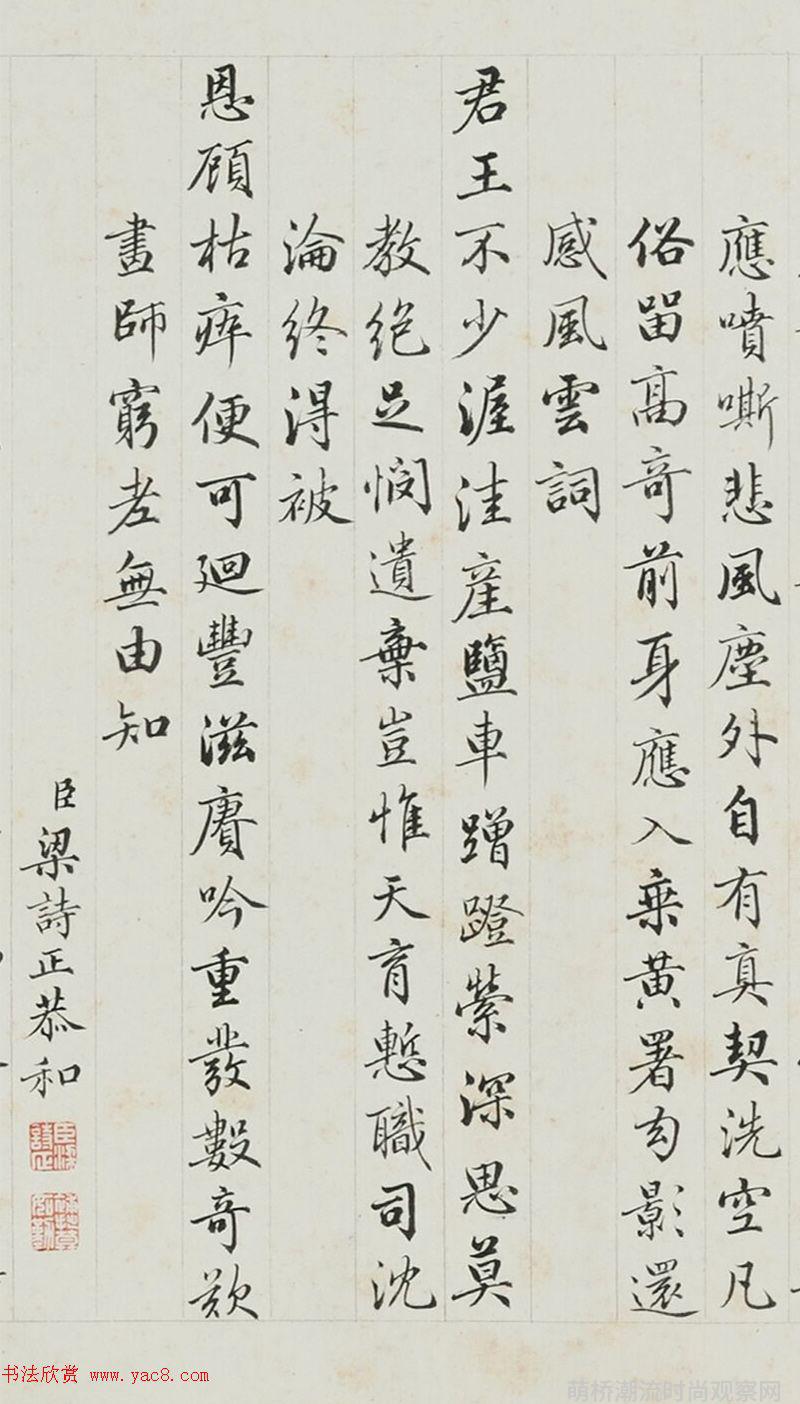 應噴嘶悲風塵外自有真契洗空凡
俗留高奇前身應入乘黃署勾影還
感風雲詞
君王不少渥洼產鹽車蹭蹬縈深思莫
教絕足憫遺棄豈惟天育慙職司沈
淪終得被
恩顧枯瘁便可廻豐滋賡吟重發數奇歎
畫師窮老無由知
臣梁詩正恭和
书法欣赏 www.yac8.com
萌桥潮流时尚观察网